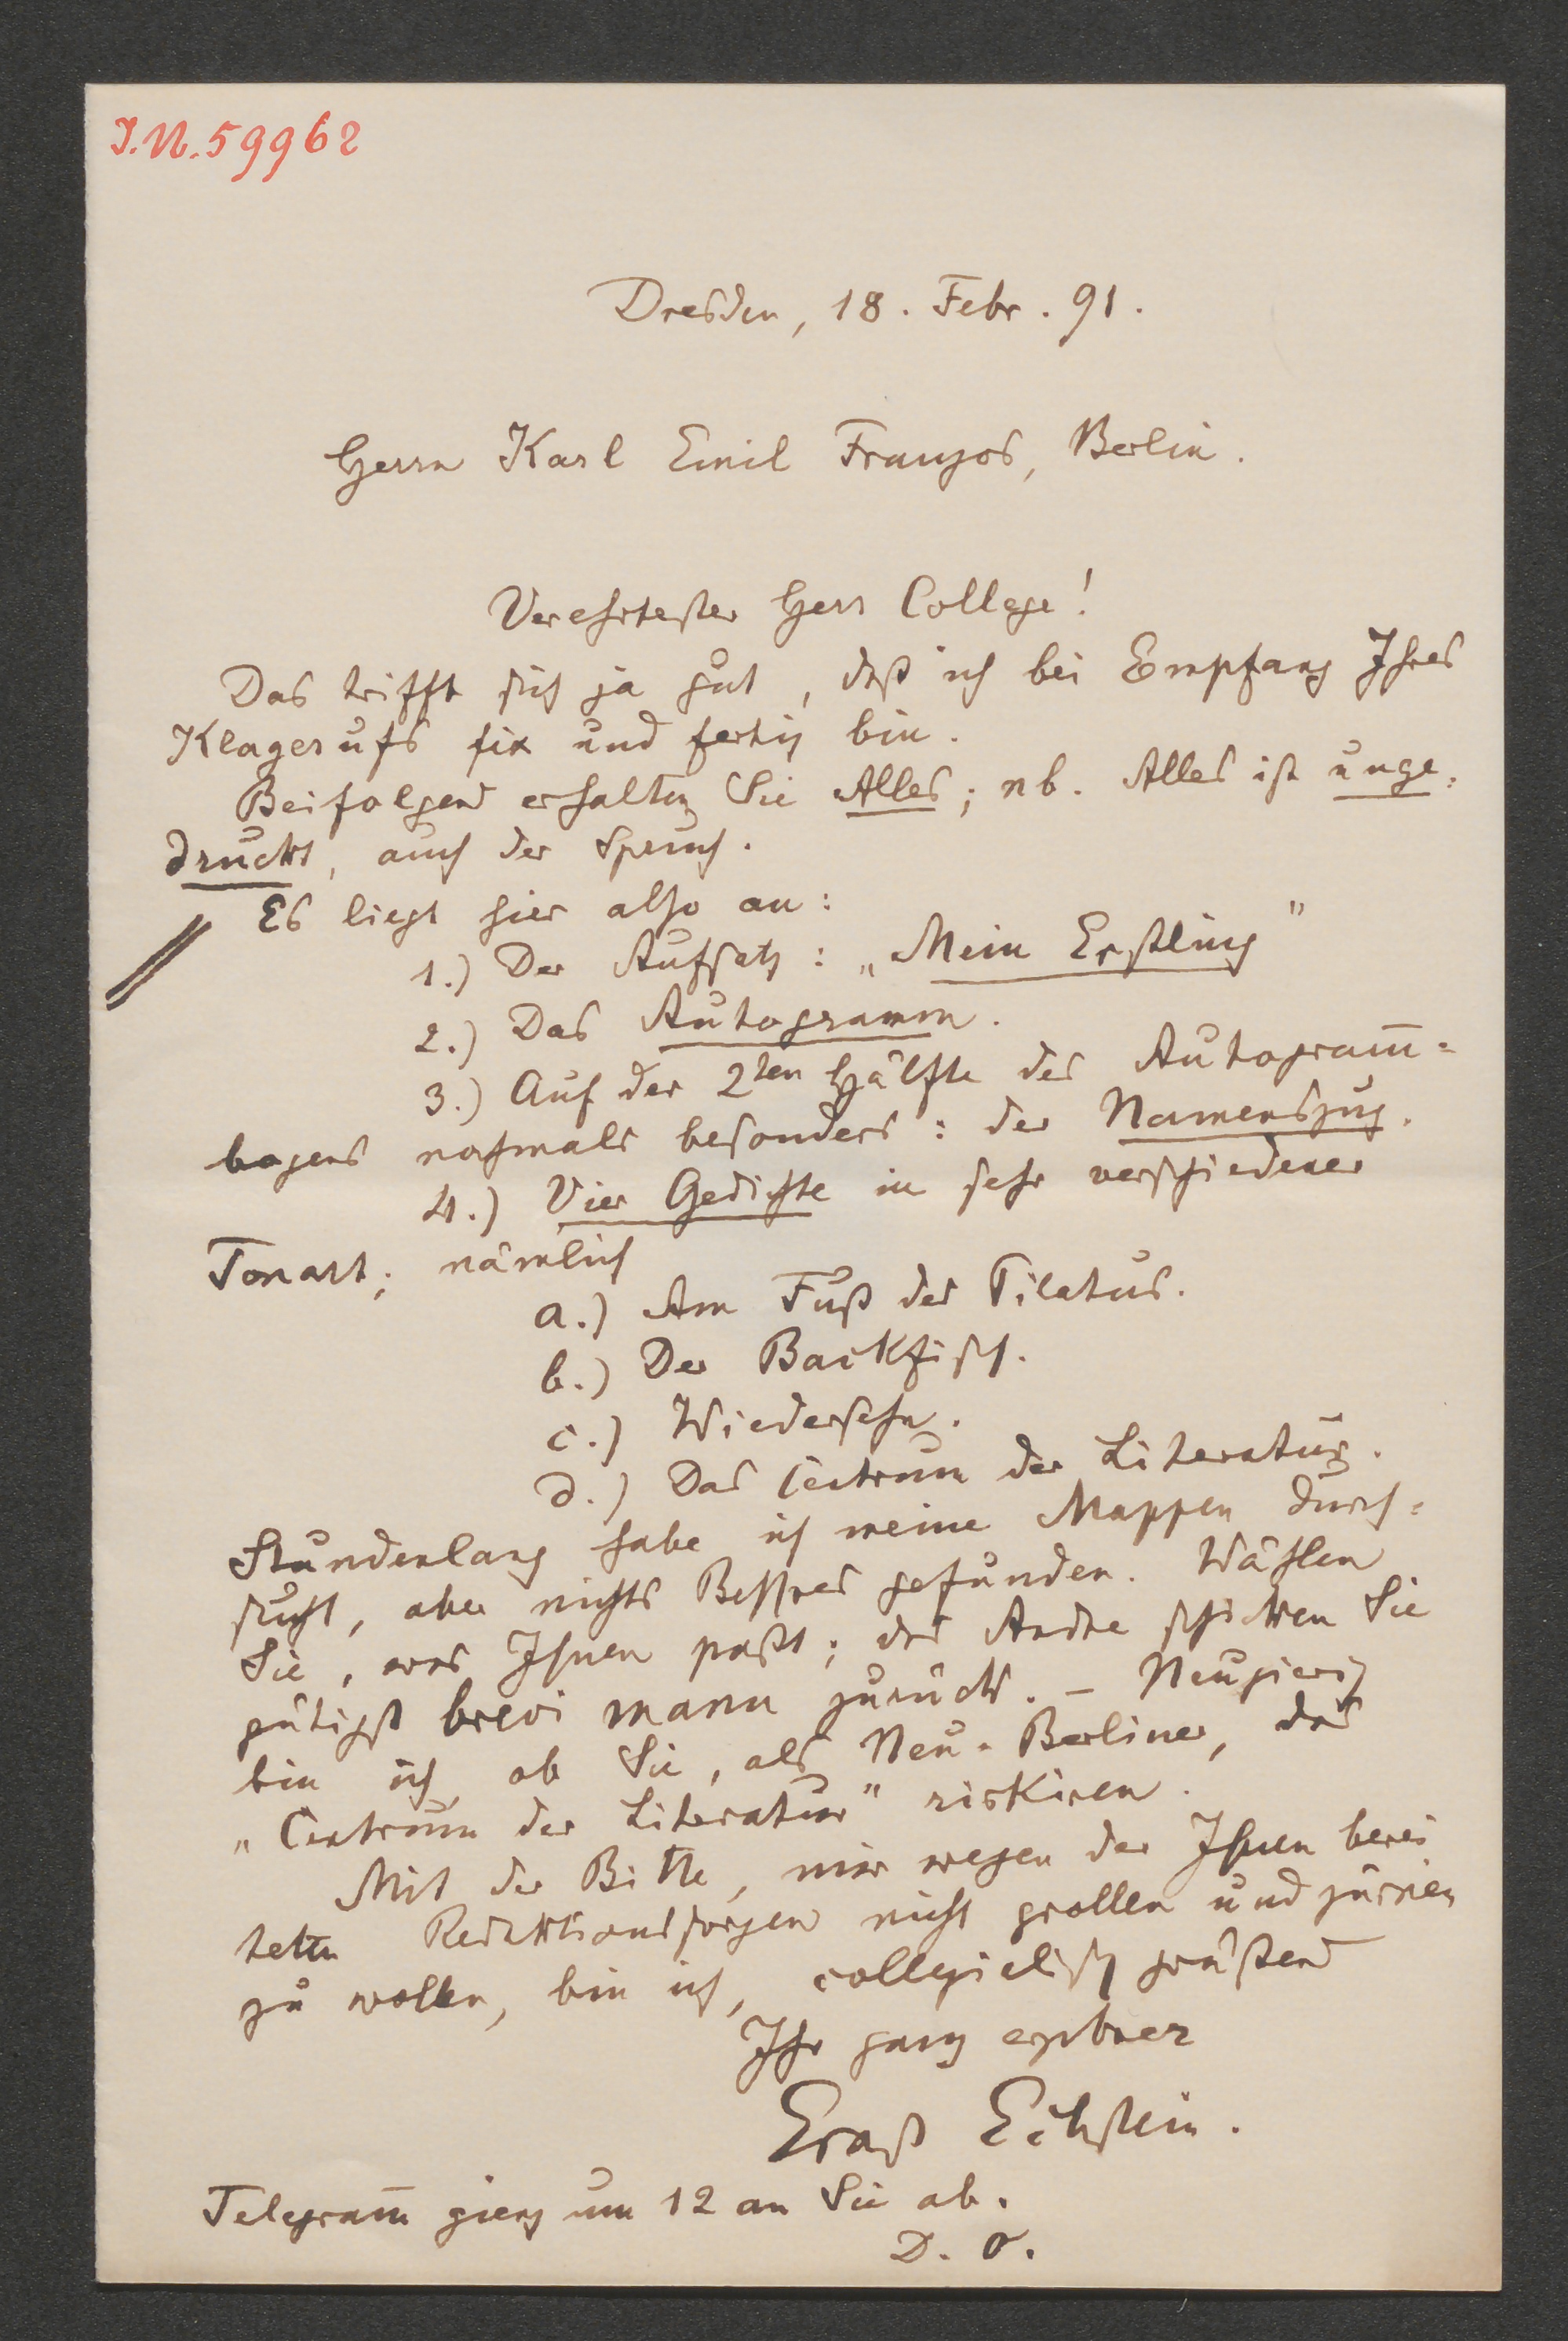 I.N. 59962
Dresden, 18. Febr. 91.
Herrn Karl Emil Franzos, Berlin.
Verehrtester Herr College!
Das trifft sich ja gut, daß ich bei Empfang Ihres
Klagerufs fix und fertig bin.
Beifolgend erhalten Sie Alles; nb. Alles ist unge-
druckt, auch der Spruch.
Es liegt hier also an:
1.) Der Aufsatz: „Mein Erstling"
2.) Das Autogramm.
3.) Auf der 2ten Hälfte des Autogram̅-
bogens nochmals besonders: der Namenszug.
4.) Vier Gedichte in sehr verschiedener
Tonart; nämlich
a.) Am Fuß des Pilatus.
b.) Der Backfisch.
c.) Wiedersehn.
d.) Das Centrum der Literatur.
Stundenlang habe ich meine Mappen durch-
sucht, aber nichts Beßres gefunden. Wählen
Sie, was Ihnen paßt; das Andre schicken Sie
gütigst brevi manu zurück. – Neugierig
bin ich, ob Sie, als Neu-Berliner, das
„Centrum der Literatur" riskiren.
Mit der Bitte, mir wegen der Ihnen berei
teten Redaktionssorgen nicht grollen und zürnen
zu wollen, bin ich, collegialisch grüßend
Ihr ganz ergebner
Ernst Eckstein.
Telegram̅ gieng um 12 an Sie ab.
D. O.